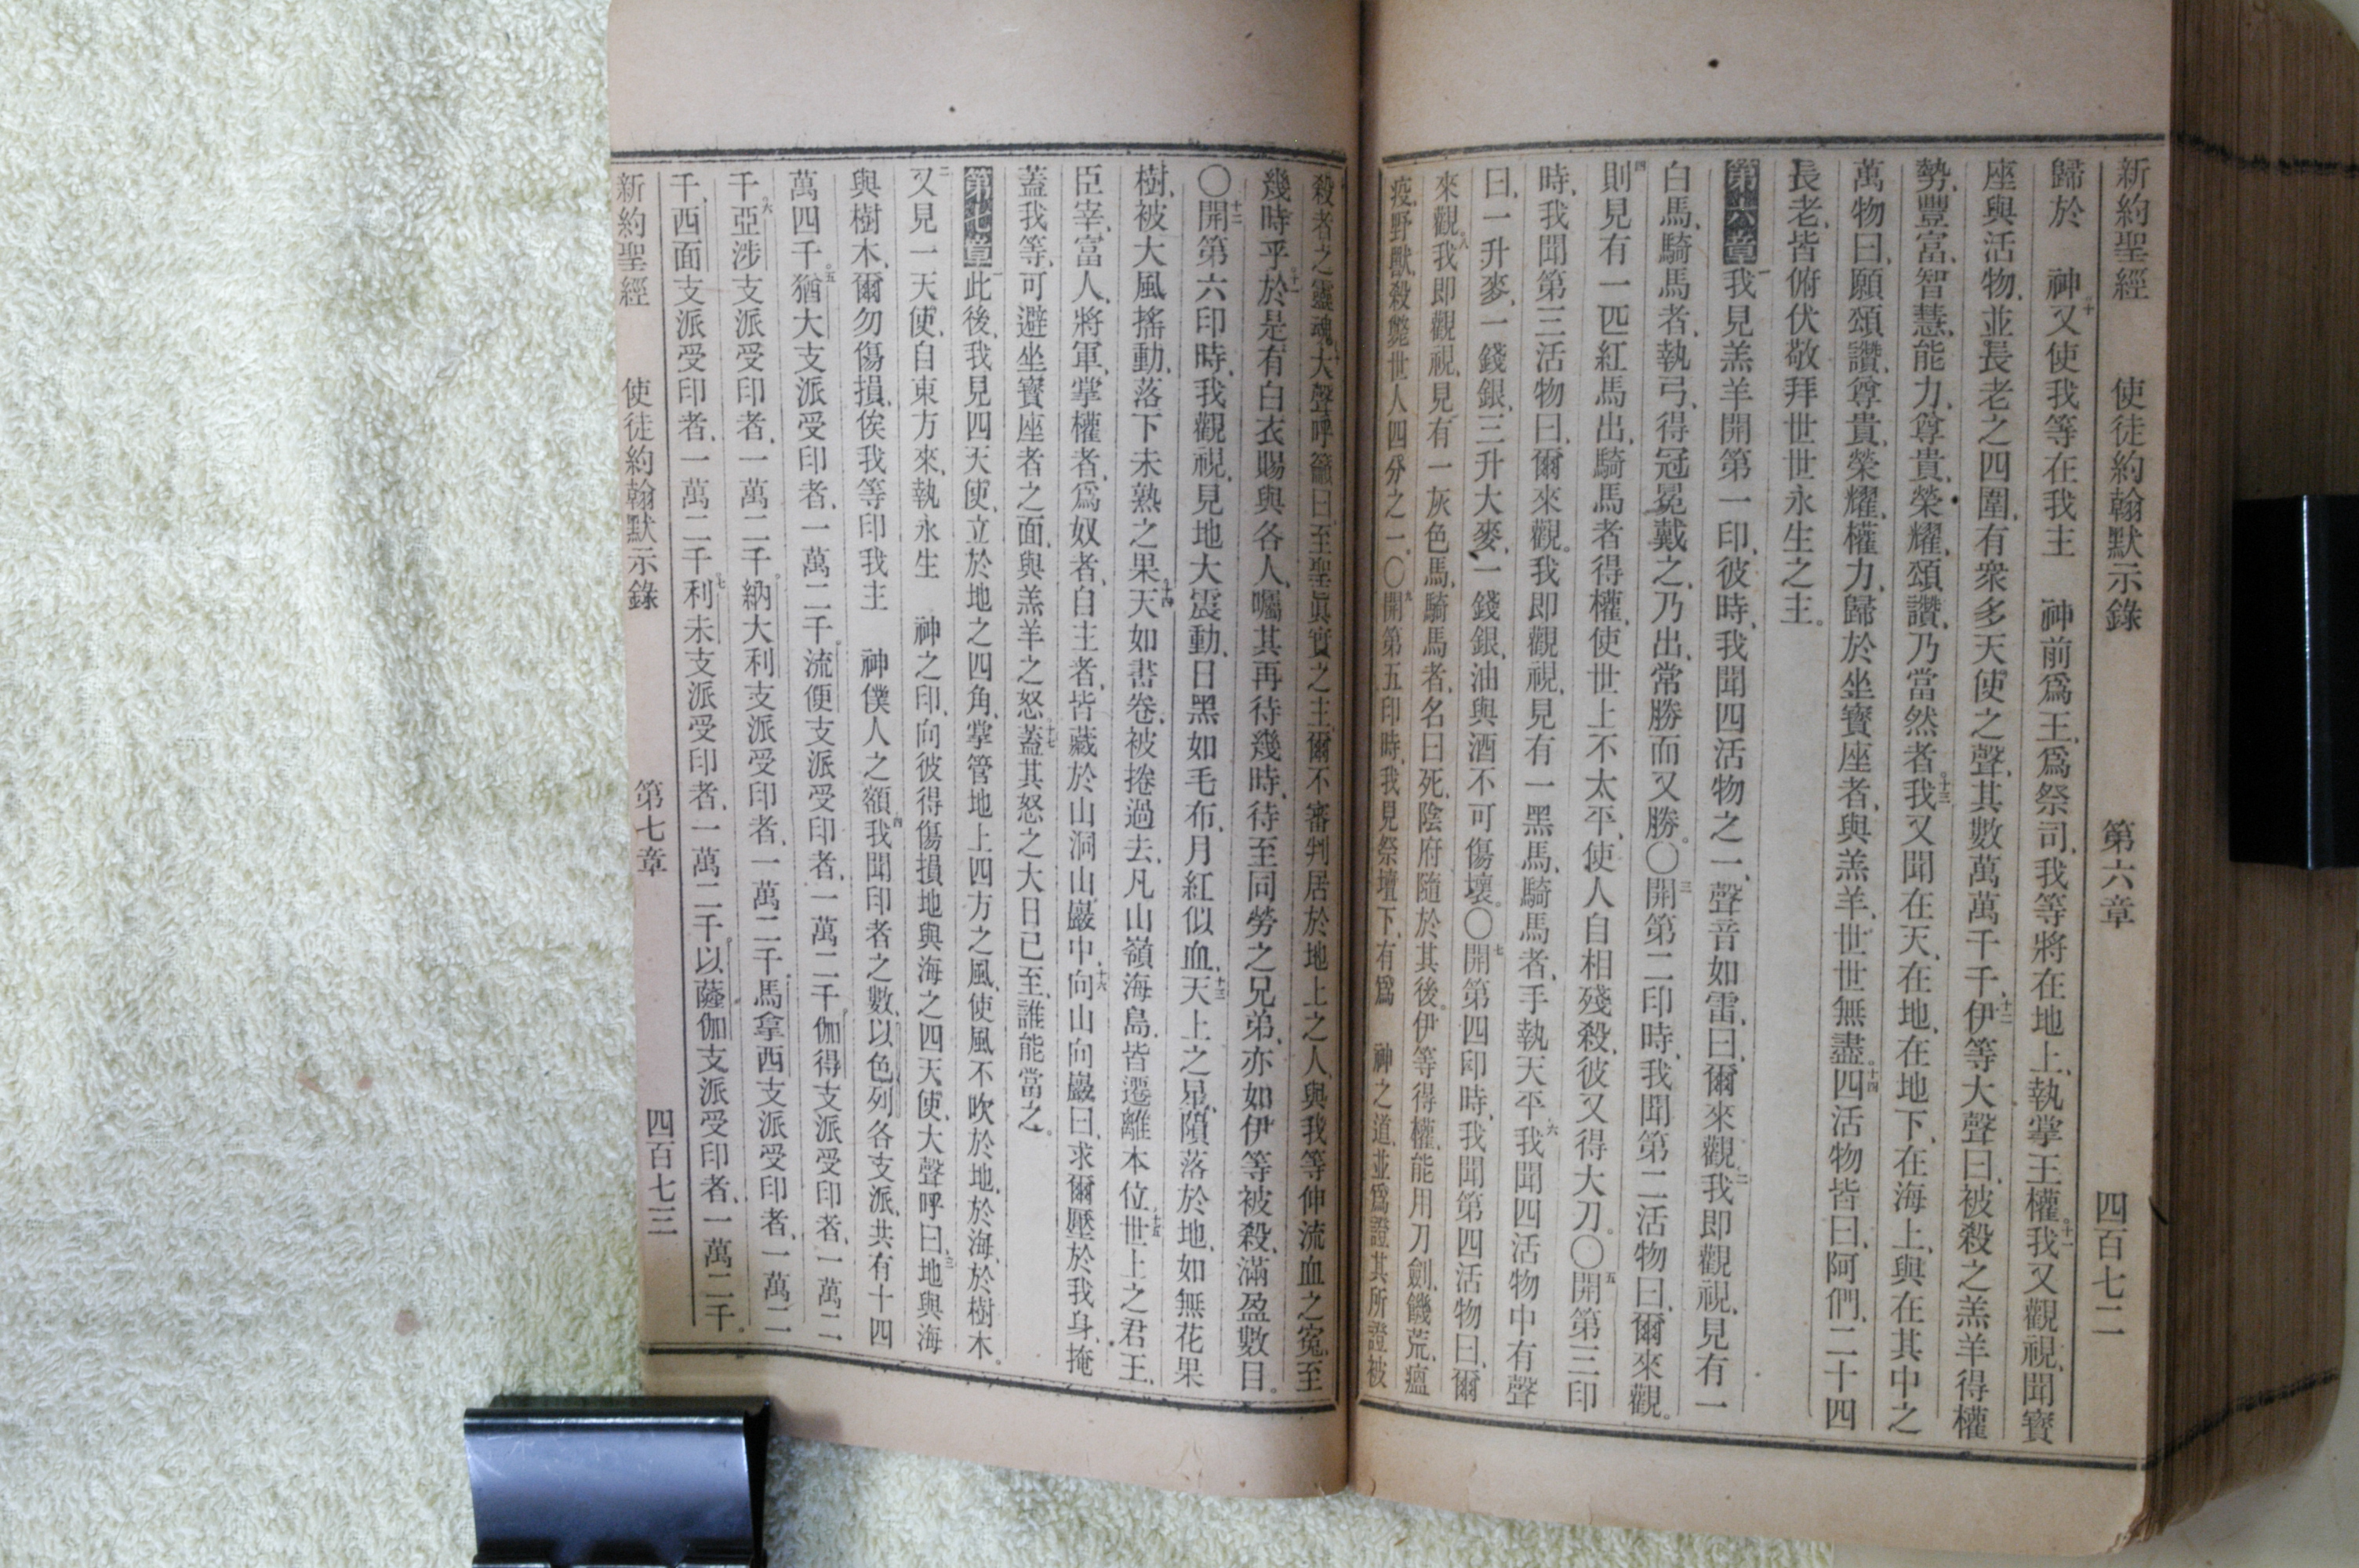 新約聖經 使徒約翰默示錄 第六章 四百七二
歸於 神。十又使我等在我主 神前爲王、爲祭司、我等將在地上、執掌王權。十一我又觀視、聞寶
座與活物、並長老之四圍、有衆多天使之聲、其數萬萬千千、十二伊等大聲曰、被殺之羔羊得權
勢、豐富、智慧、能力、尊貴、榮耀、頌讚、乃當然者。十三我又聞在天、在地、在地下、在海上、與在其中之
萬物曰、願頌讚、尊貴、榮耀、權力、歸於坐寶座者、與羔羊、世世無盡。十四四活物皆曰、阿們、二十四
長老、皆俯伏敬拜世世永生之主。
第六章一我見羔羊開第一印、彼時、我聞四活物之一、聲音如雷、曰、爾來觀、二我即觀視、見有一
白馬、騎馬者、執弓、得冠冕戴之、乃出、常勝而又勝。〇三開第二印時、我聞第二活物曰、爾來觀。
四則見有一匹紅馬出、騎馬者得權、使世上不太平、使人自相殘殺、彼又得大刀。〇五開第三印
時、我聞第三活物曰、爾來觀。我即觀視、見有一黑馬、騎馬者、手執天平、六我聞四活物中有聲
曰、一升麥、一錢銀、三升大麥、一錢銀、油與酒不可傷壞。〇七開第四印時、我聞第四活物曰、爾
來觀。八我即觀視、見有一灰色馬、騎馬者、名曰死、陰府隨於其後。伊等得權、能用刀劍、饑荒、瘟
疫、野獸、殺斃世人四分之一。〇九開第五印時、我見祭壇下、有爲 神之道、並爲證其所證被
殺者之靈魂、大聲呼籲曰、至聖眞實之主、爾不審判居於地上之人、與我等伸流血之冤、至
幾時乎、十一於是有白衣賜與各人、囑其再待幾時、待至同勞之兄弟、亦如伊等被殺、滿盈數目。
〇十二開第六印時、我觀視、見地大震動、日黑如毛布、月紅似血、十三天上之星、隕落於地、如無花果
樹、被大風搖動、落下未熟之果、十四天如書卷、被捲過去、凡山嶺海島、皆遷離本位、十五世上之君王、
臣宰、富人、將軍、掌權者、爲奴者、自主者、皆藏於山洞山巖中、十六向山向巖曰、求爾壓於我身、掩
蓋我等、可避坐寶座者之面、與羔羊之怒、十七蓋其怒之大日已至、誰能當之。
第七章一此後、我見四天使、立於地之四角、掌管地上四方之風、使風不吹於地、於海、於樹木。
二又見一天使、自東方來、執永生 神之印、向彼得傷損地與海之四天使、大聲呼曰、三地與海
與樹木、爾勿傷損、俟我等印我主 神僕人之額、四我聞印者之數、以色列各支派、共有十四
萬四千。五猶大支派受印者、一萬二千。流便支派受印者、一萬二千。伽得支派受印者、一萬二
千。六亞涉支派受印者、一萬二千。納大利支派受印者、一萬二千。馬拿西支派受印者、一萬二
千、西面支派受印者、一萬二千。七利未支派受印者、一萬二千。以薩伽支派受印者、一萬二千。
新約聖經 使徒約翰默示錄 第七章 四百七三